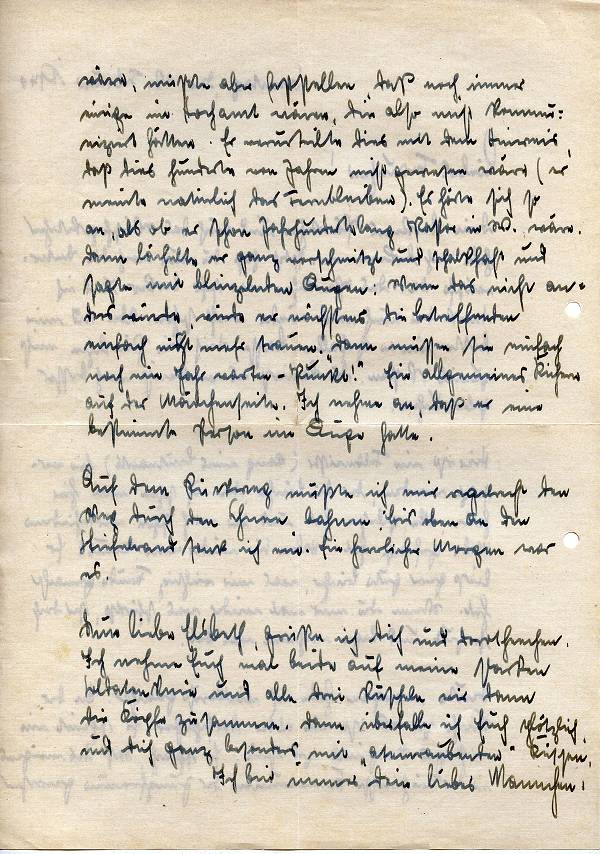 wäre, mußte aber feststellen, daß noch immer
einige im Hochamt wären, die also nicht kommu-
niziert hätten. Er verurteilte dies mit dem Hinweis,
daß dies hunderte von Jahren nicht gewesen wäre (er
meinte natürlich das Fernbleiben). Es hörte sich so
an, als ob er schon Jahrhundertelang Pastor in W. wäre.
Dann lächelte er ganz verschmitzt und schalkhaft und
sagte mit blinzelnden Augen: Wenn das nicht an-
ders würde, würde er nächstens die betreffenden
einfach nicht mehr trauen. Dann müssen sie einfach
noch ein Jahr warten - Punkt!" Ein allgemeines Kichern
auf der Mädchenseite. Ich nehme an, daß er eine
bestimmte Person im Auge hatte.
Auf dem Rückweg mußte ich mir regelrecht den
Weg durch den Schnee bahnen, bis oben an den
Stiefelrand sank ich ein. Ein herrlicher Morgen war
es.
Nun liebe Elsbeth, grüße ich Dich und Dorotheechen.
Ich nehme Euch mal beide auf meine starken
Soldatenknie und alle drei kuscheln wir dann
die Köpfe zusammen. Dann überfalle ich Euch plötzlich
und Dich ganz besonders mit "atemraubenden" Küssen.
Ich bin immer Dein liebes Männchen.